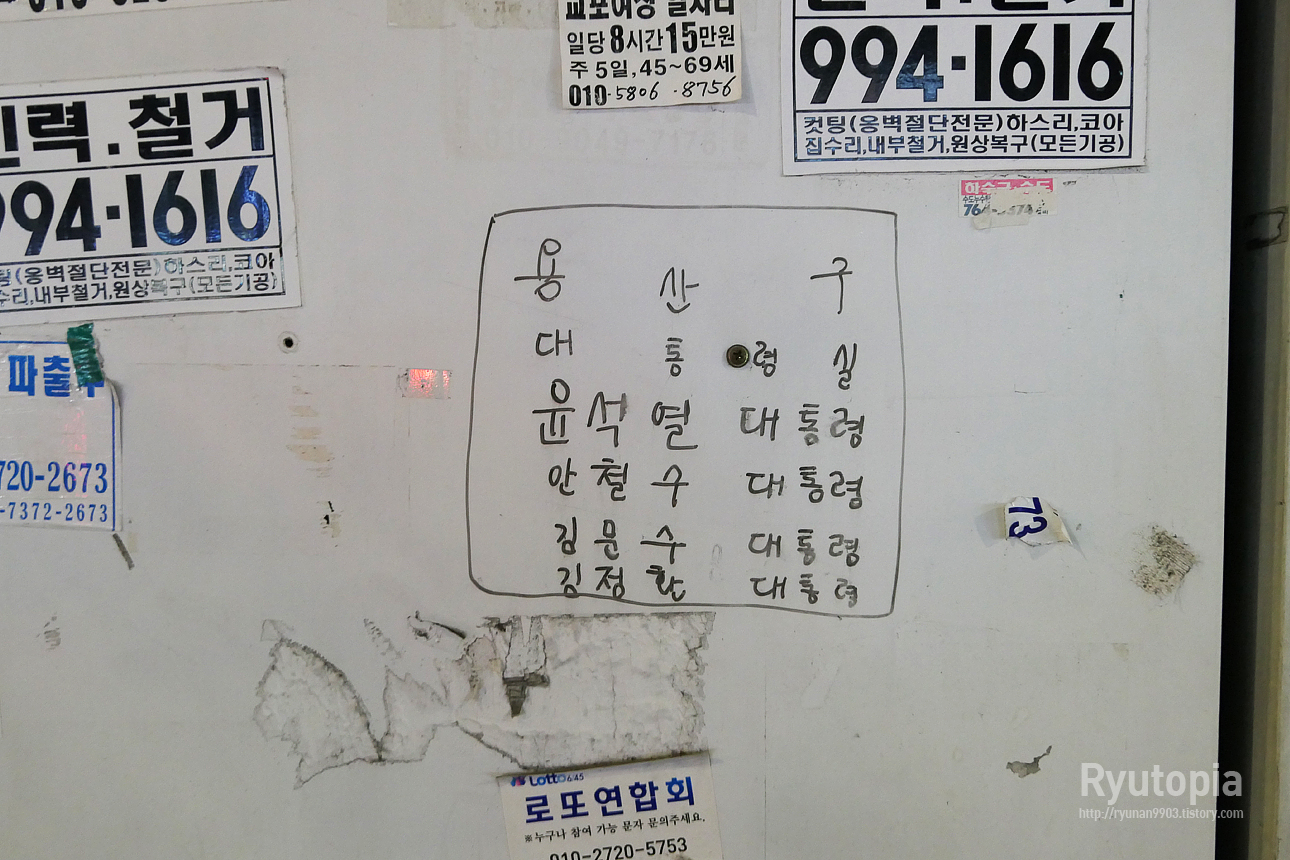 교포여성 일자리
일당 8시간 15만원
주 5일, 45~69세
010-5806-8756
994·1616
컷팅(옹벽절단전문)하스리,코아
집수리,내부철거,원상복구(모든기공)
인력.철거
994·1616
(옹벽절단전문)하스리,코아
수리,내부철거,원상복구(모든기공)
하수구·수도
용산구
대통령실
윤석열 대통령
안철수 대통령
김문수 대통령
김정환 대통령
파출부
720-2673
-7372-2673
73
Lotto 6/45
로또연합회
※누구나 참여 가능 문자 문의주세요.
010-2720-5753
Ryutopia
http://ryunan9903.tistory.com